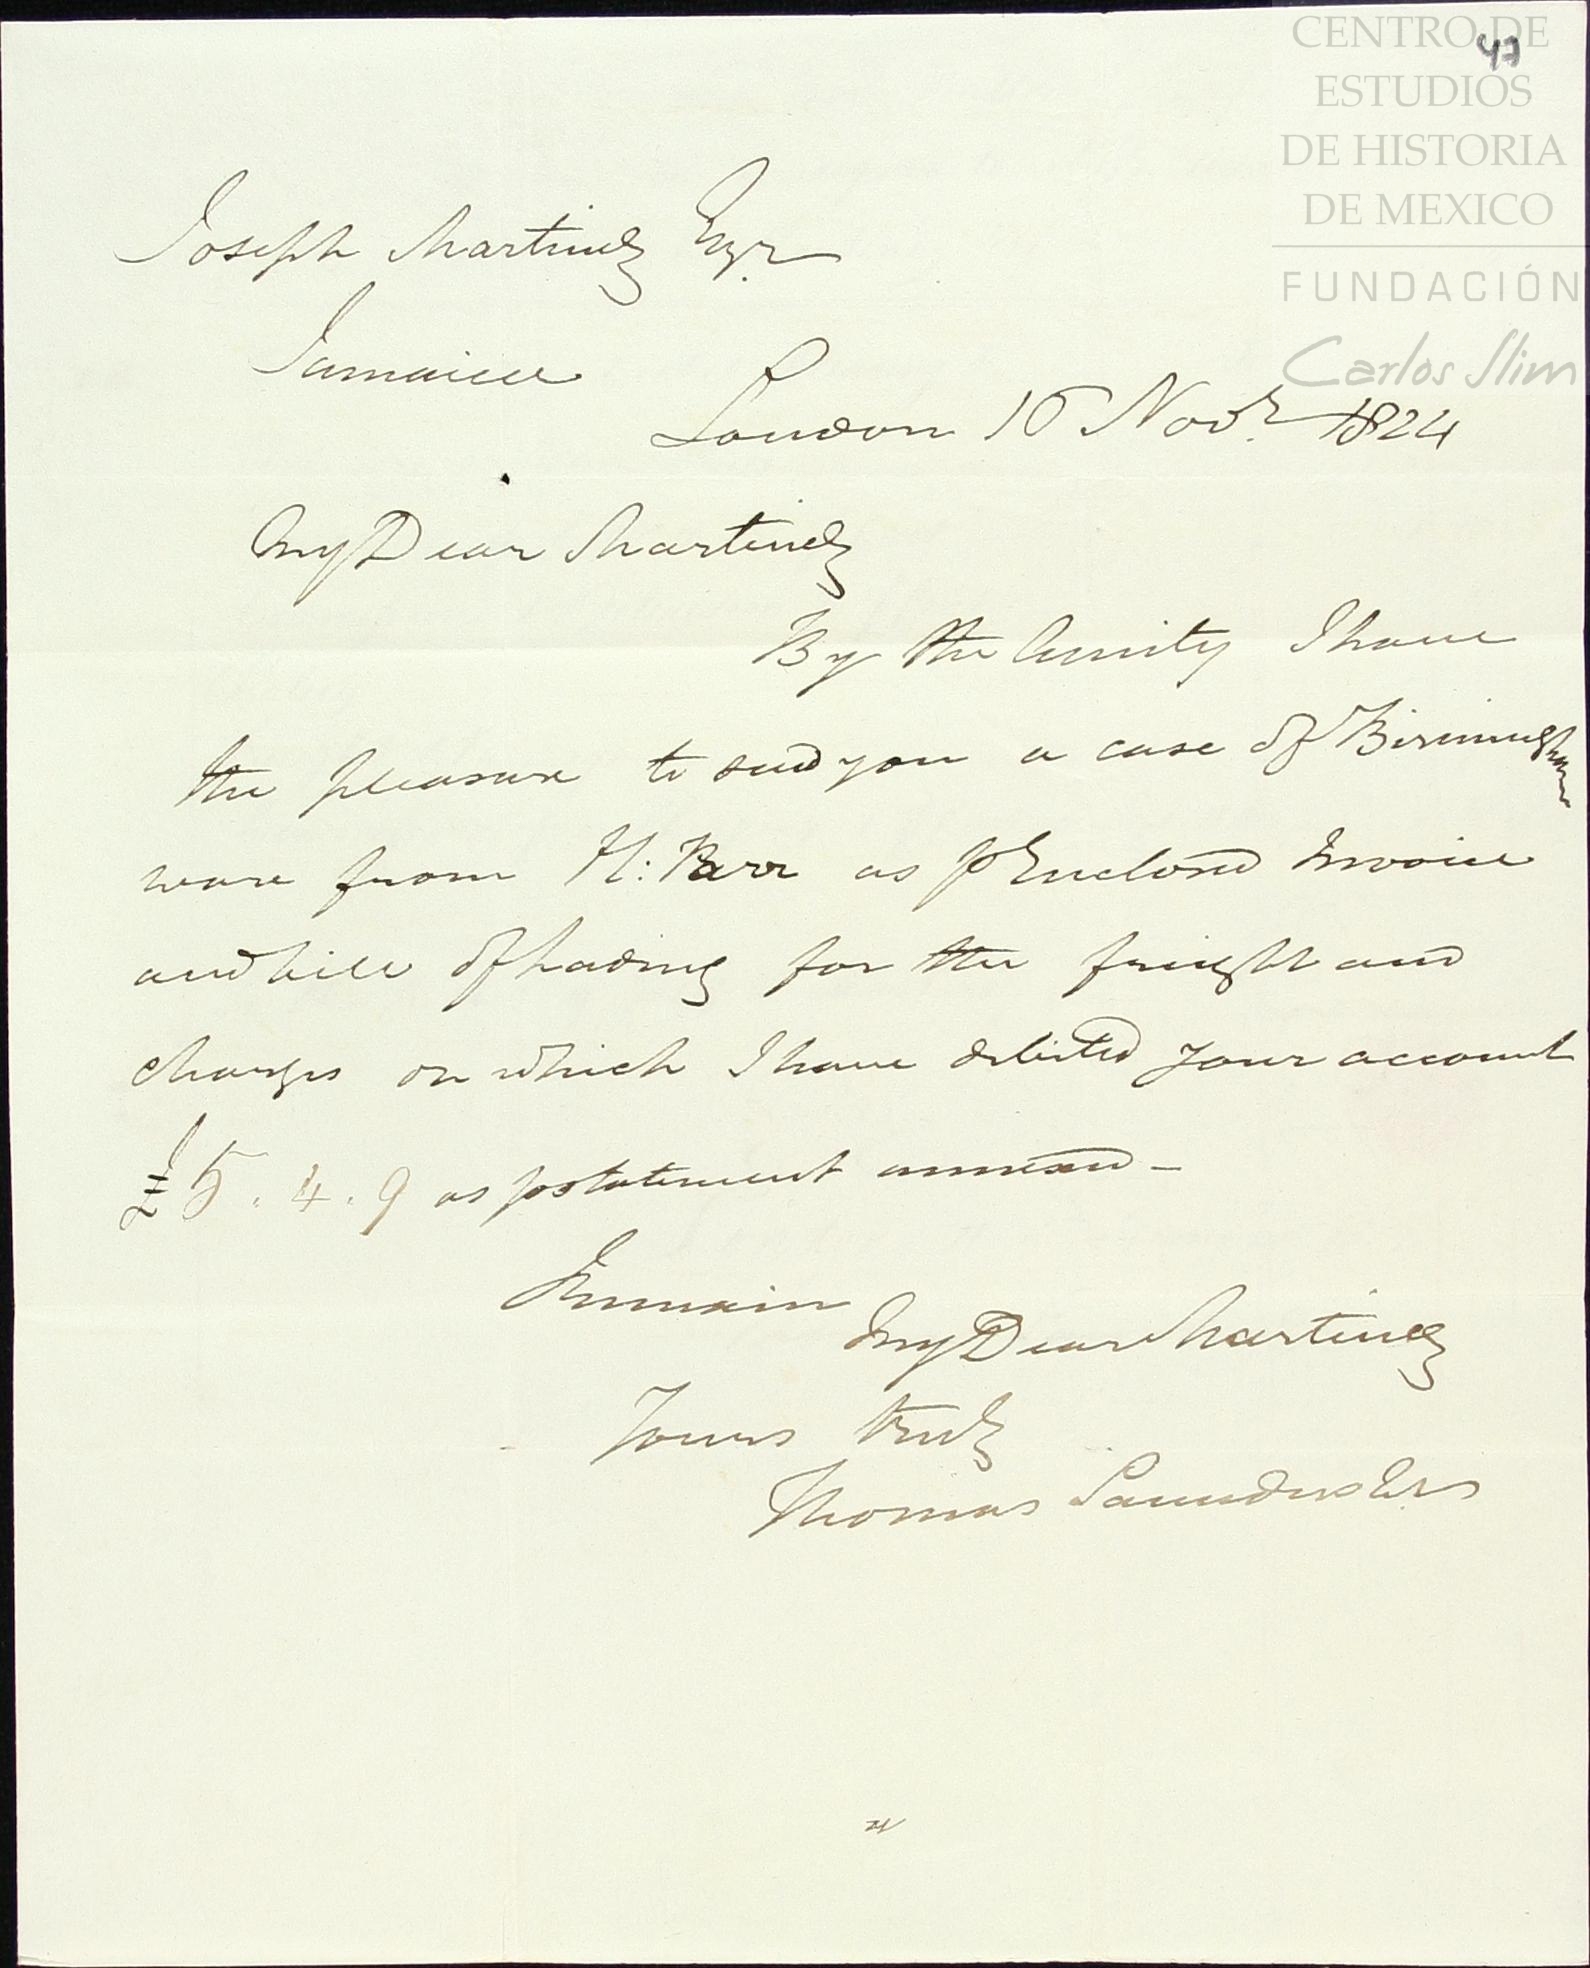 CENTRO DE
ESTUDIOS
DE HISTORIA
DE MEXICO
FUNDACIÓN
Carlos Slim
47
Joseph Martinez Esqr
Jamaica
London 16 Novr. 1824
My Dear Martinez
By the Amity I have
the pleasure to send you a case of Birmingham
ware from H: Parr as p Enclosed Invoice
and bill of Lading for the freight and
charges on which I have debited your account
£ 5. 4. 9 as p statement annexed –
I remain
My Dear Martinez
Yours truly
Thomas Saunders